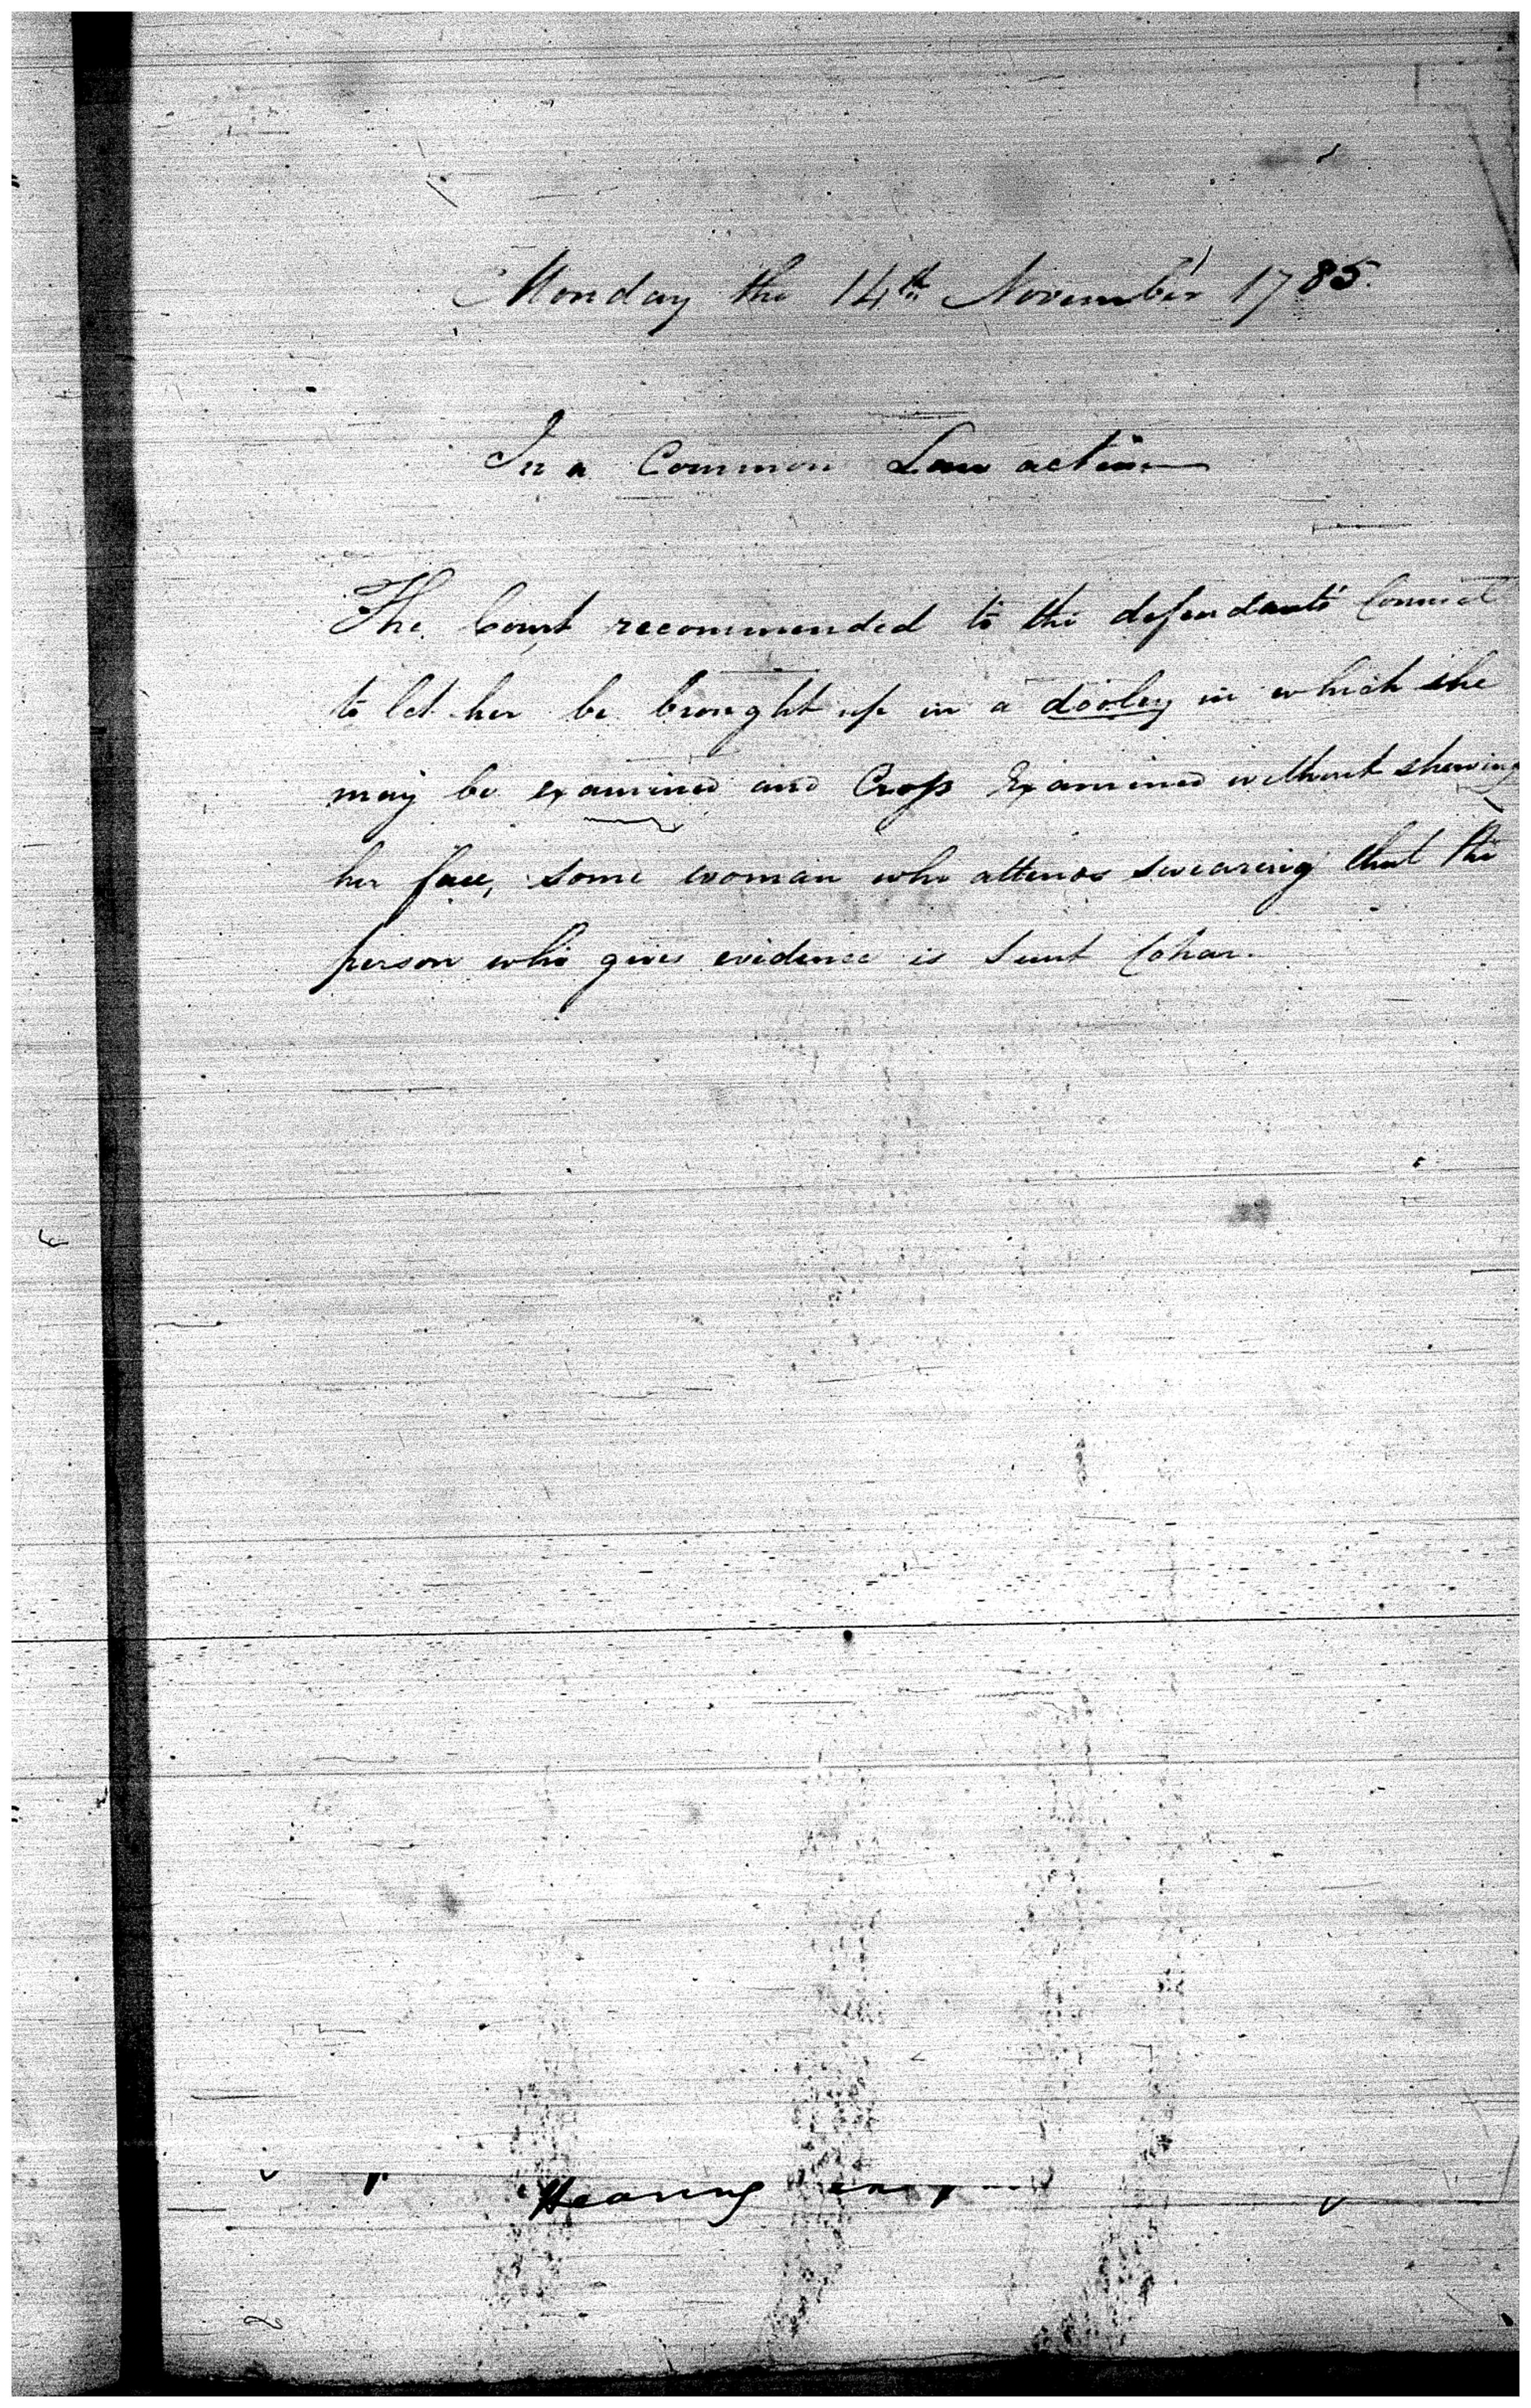 Monday the 14th November 1785.
In a Common Law action
The Court recommended to the defendants' Counsel
to let her be brought up in a dooley in which she
may be examined and Cross Examined without shewing
her face, some woman who attends swearing that the
person who gives evidence is
Hearing